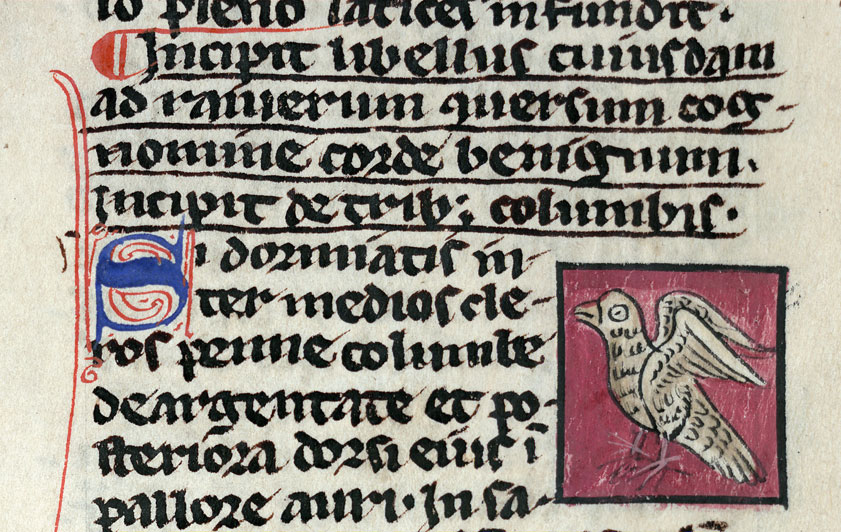 io pleno latices infundit.
Incipit libellus cuiusdam
ad rainerum quersum cog-
nomine corde benignum.
Incipit de trib; columbis.
Si dormiatis in-
ter medios cle-
ros penne columbe
de argentate et po-
steriora dorsi eius ī
pallore auri. In sa-